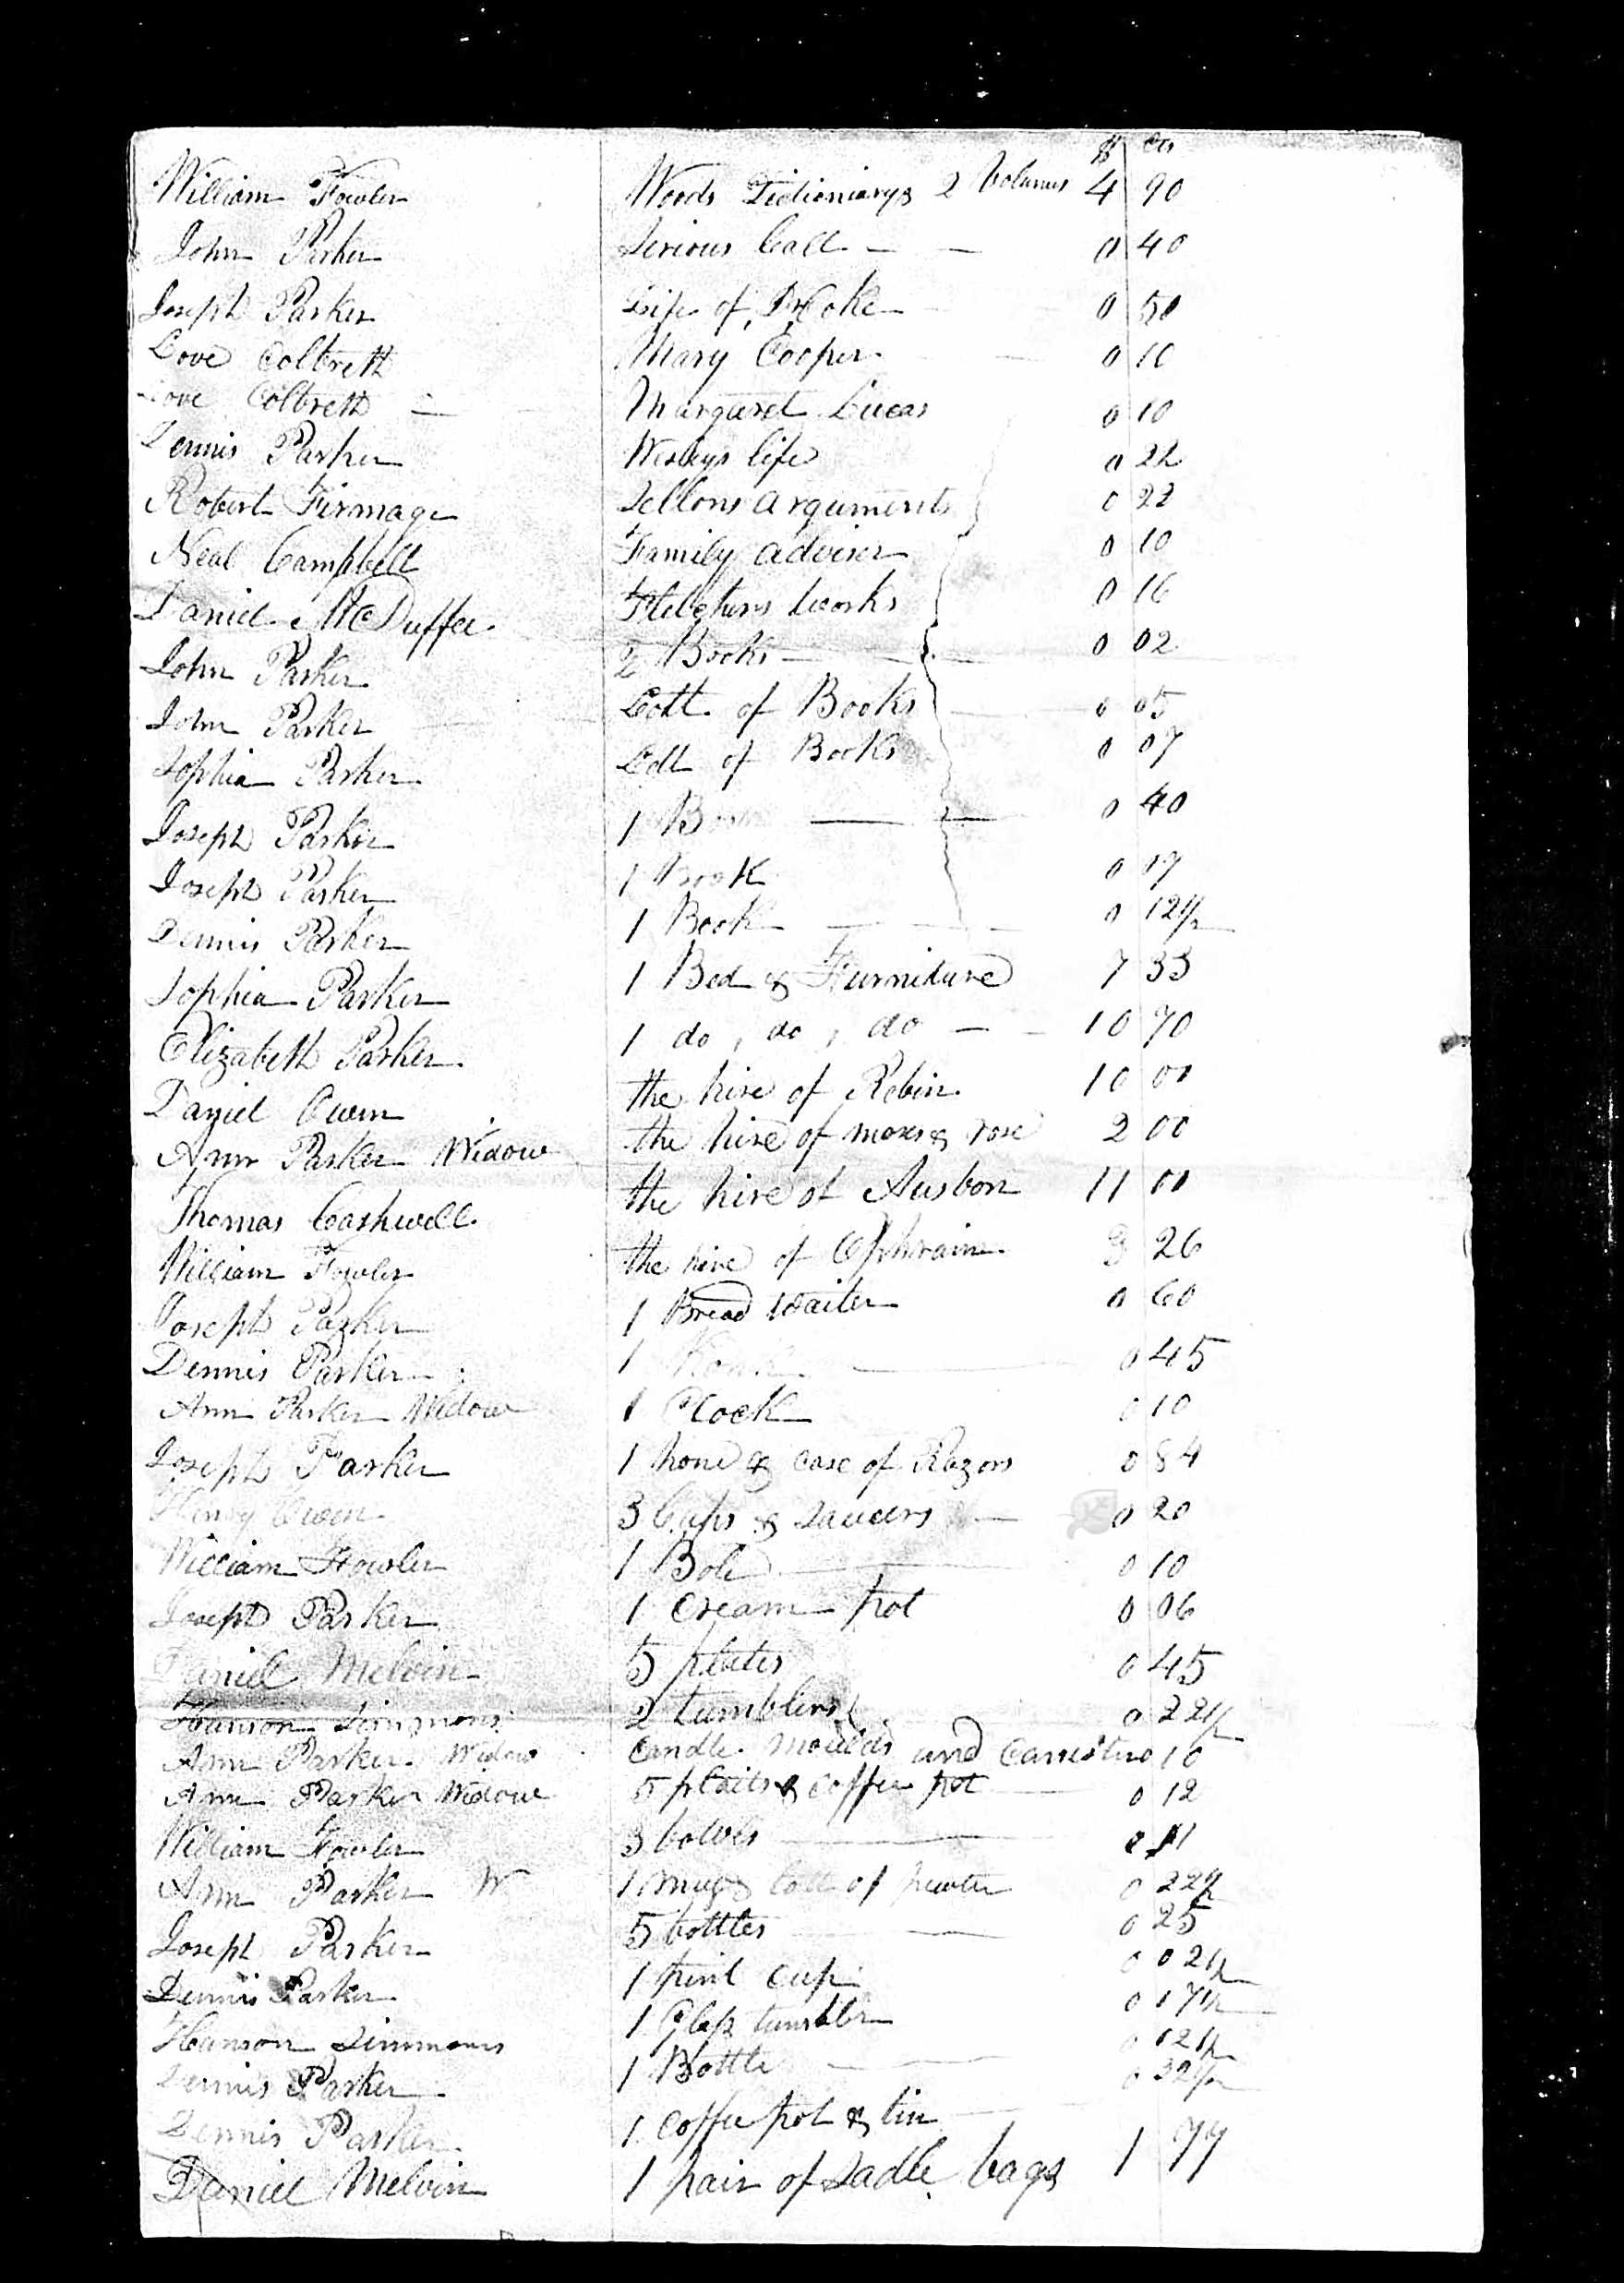 $ Cts
William Fowler Woods Dictionary 2 Volumes 4 90
John Parker Serious Call 0 40
Joseph Parker Life of Dr Coke 0 50
Love Colbreth Mary Cooper 0 10
Love Colbreth Margaret Lucas 0 10
Dennis Parker Wesleys life 0 22
Robert Firmage arguments 0 23
Neal Campbell Family adviser 0 10
Daniel McDuffee Fletchers works 0 16
John Parker 2 Books 0 02
John Parker Lott of Books 0 05
Sophia Parker Lott of Books 0 07
Joseph Parker 1 0 40
Joseph Parker 1 Book 0 17
Dennis Parker 1 Book 0 12 1/2
Sophia Parker 1 Bed & Furniture 7 33
Elizabeth Parker 1 do, do, do 10 70
Daniel Owen the hire of Robin 10 00
Ann Parker Widow the hire of moses & rose 2 00
Thomas Cashwell the hire of Ausbon 11 00
William Fowler the hire of Ephraim 3 26
Joseph Parker 1 Bread Waiter 0 60
Dennis Parker 1 0 45
Ann Parker Widow 1 Clock 0 10
Joseph Parker 1 hone & case of Razors 0 84
Henry Owen 3 Cups & Saucers 0 20
William Fowler 1 Bole 0 10
Joseph Parker 1 Cream pot 0 06
Daniel Melvin 5 plates 0 45
Hanson Simmons 2 tumblers 0 22 1/2
Ann Parker Widow Candle moulds and Canester 0 10
Ann Parker Widow 5 plaits & coffee pot 0 12
William Fowler 3 bowls 0 11
Ann Parker W 1 mug & Lott of pewter 0 22 1/2
Joseph Parker 5 bottles 0 25
Dennis Parker 1 pint cup 0 02 1/2
Hanson Simmons 1 Glass tumbler 0 17 1/2
Dennis Parker 1 Bottle 0 12 1/2
Dennis Parker 1 coffee pot & tin 0 32 1/2
Daniel Melvin 1 pair of Sadle bags 1 77